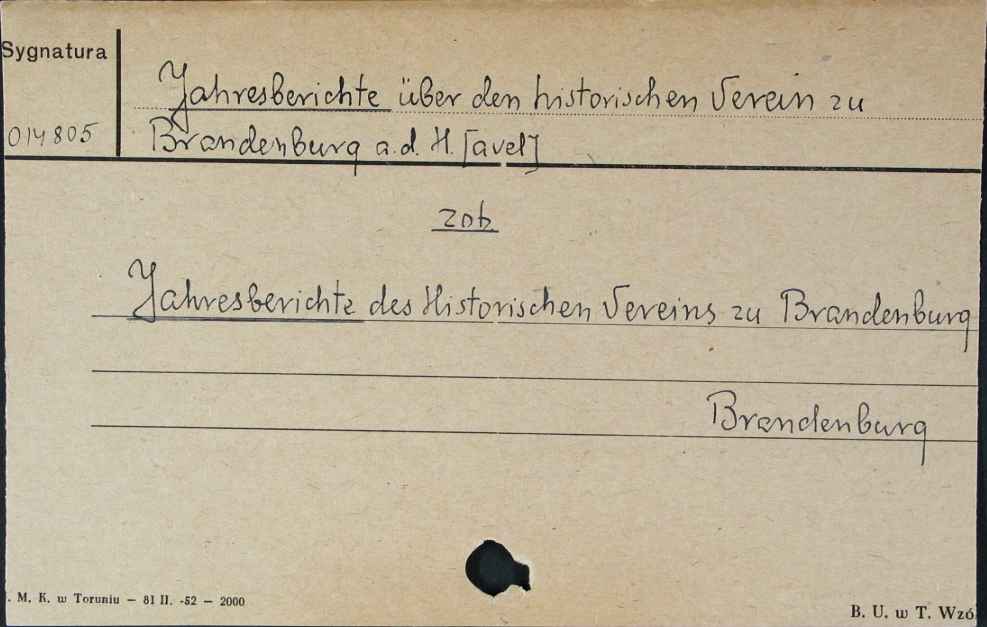 Sygnatura
Jahresberichte über den historischen Verein zu
014805
Brandenburg a.d. H. [avel]
zob.
Jahresberichte des Historischen Vereins zu Brandenburg
Brandenburg
. M. K. w Toruniu — 81 II. -52 — 2000
B. U. w T. Wzó